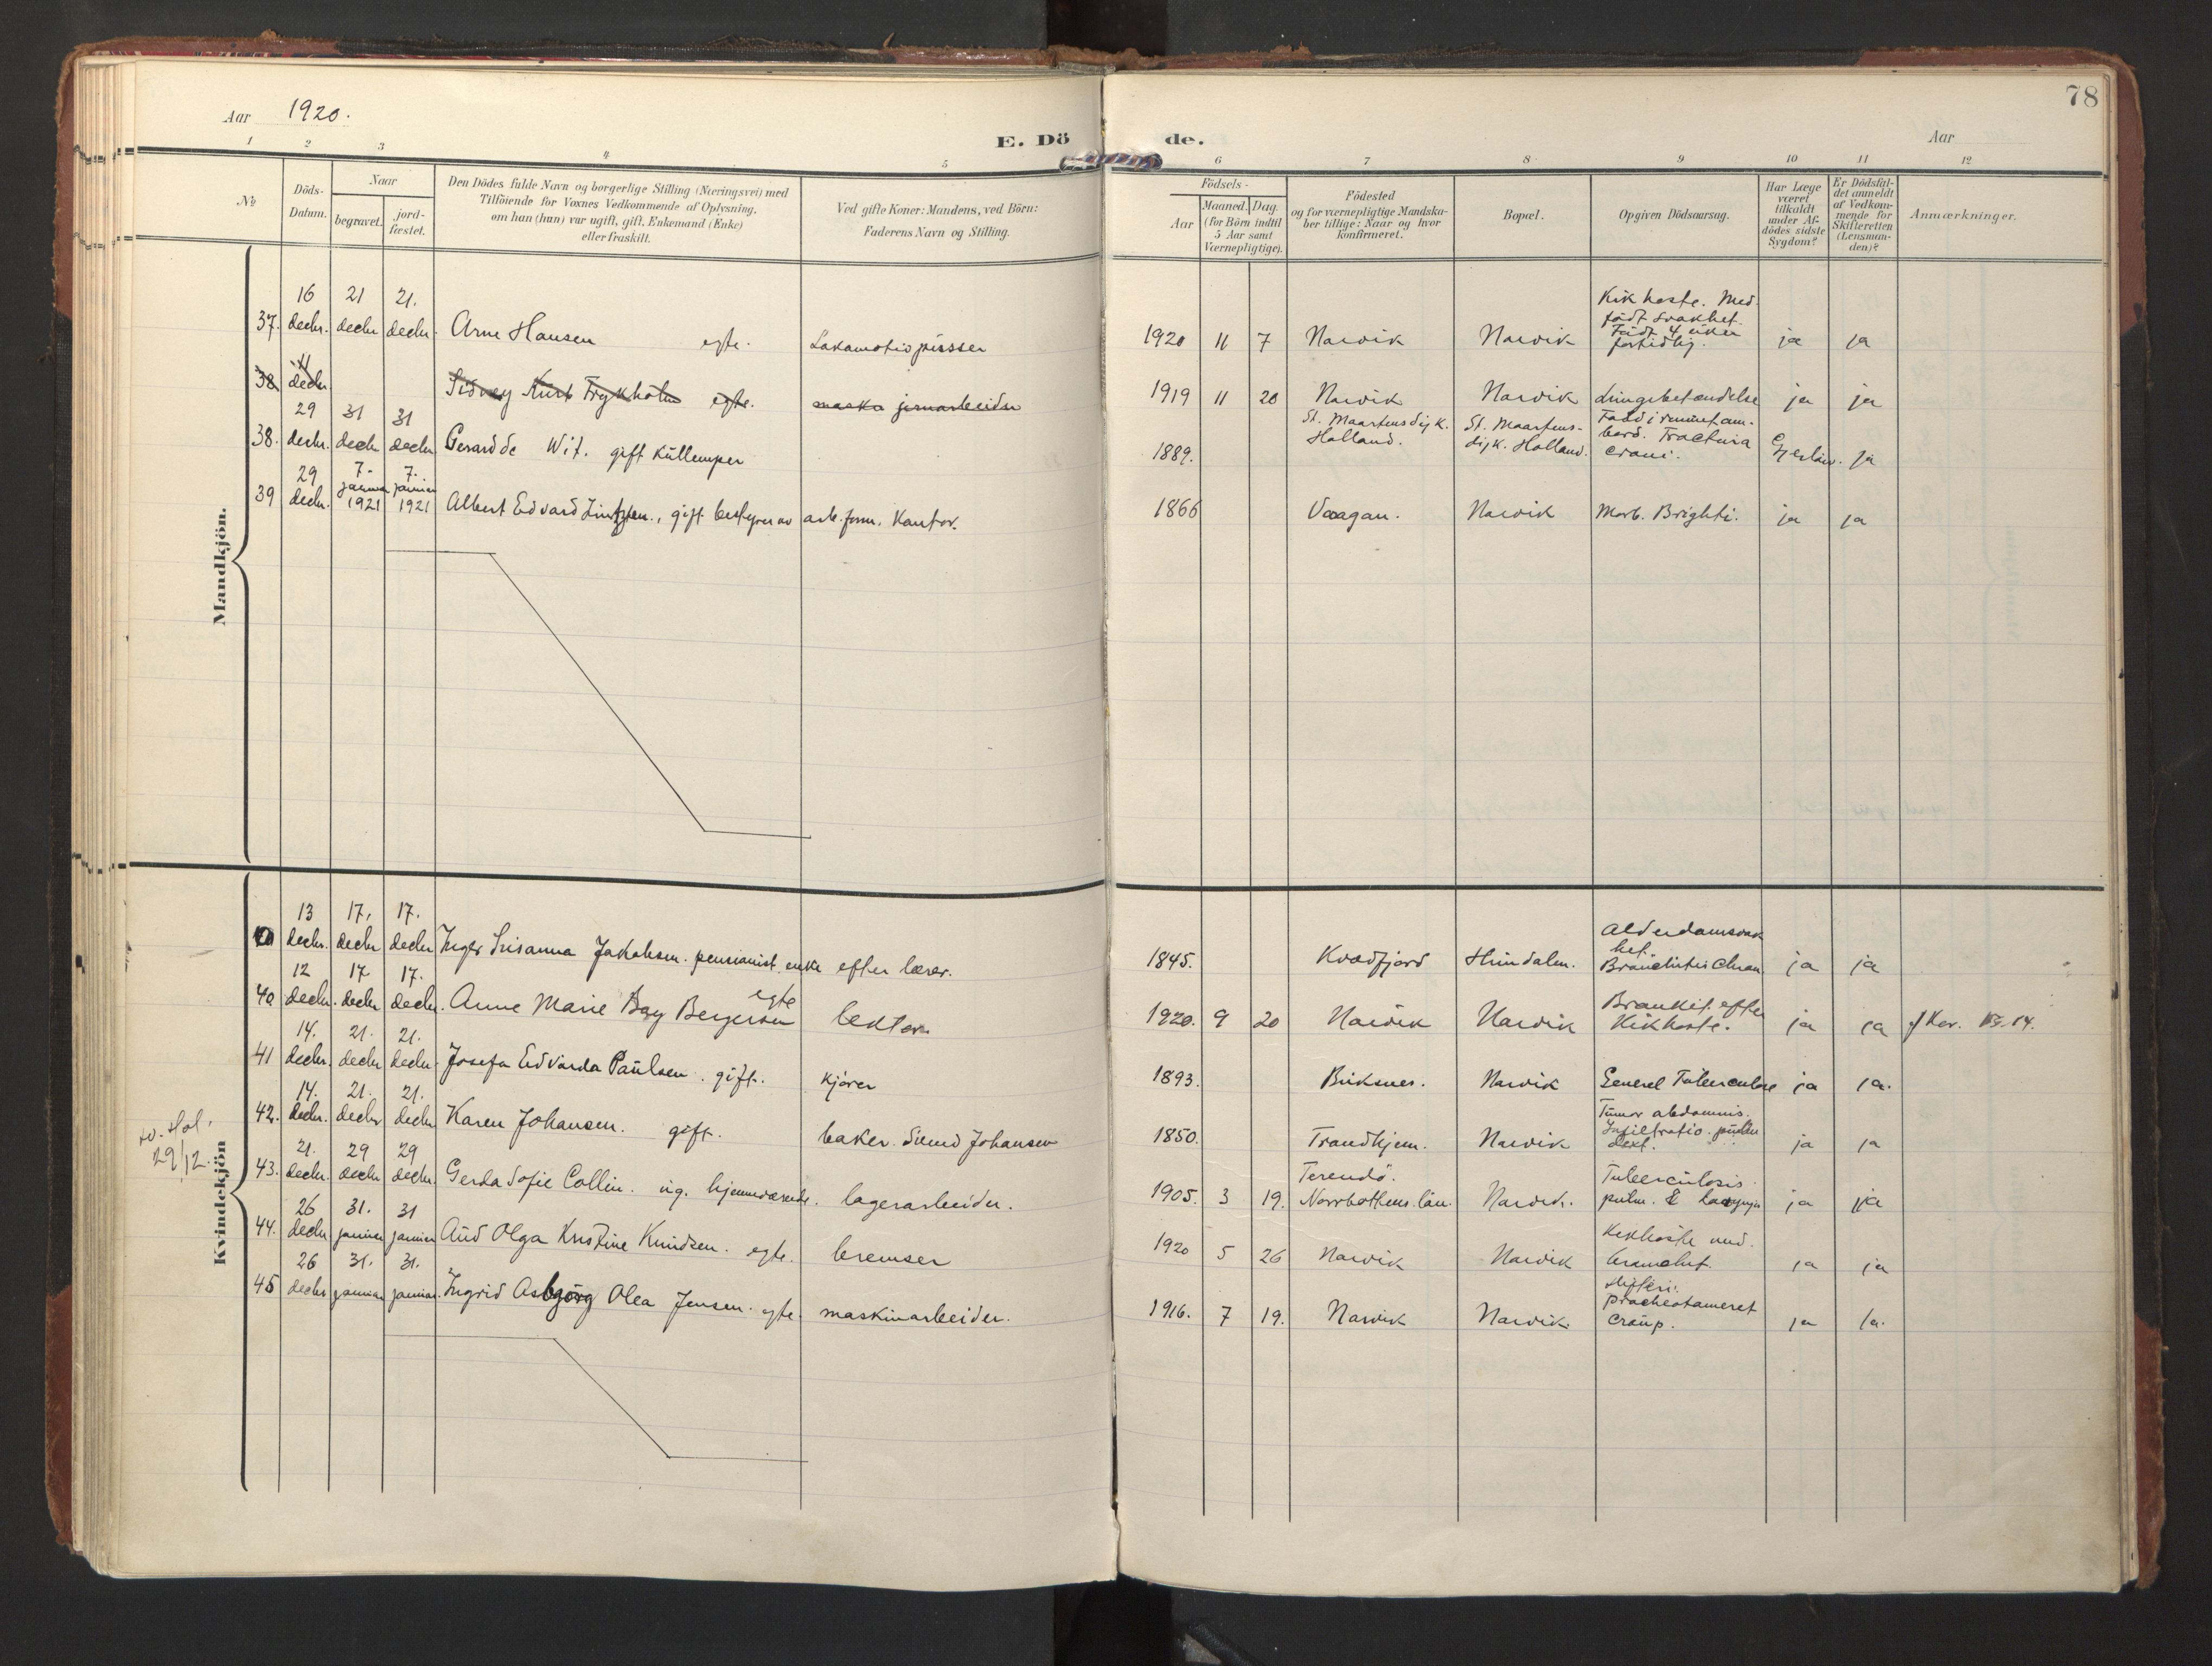 78
Aar 1920.
E. Döde.
Aar
1 2 3 4 5 6 7 8 9 10 11 12
№
Döds-Datum.
Naar
begravet.
jord-fæstet.
Den Dödes fulde Navn og borgerlige Stilling (Næringsvei) med
Tilföiende for Voxnes Vedkommende af Oplysning,
om han (hun) var ugift, gift, Enkemand (Enke)
eller fraskilt.
Ved gifte Koner: Mandens, ved Börn:
Faderens Navn og Stilling.
Födsels-
Aar
Maaned. Dag.
(for Börn indtil
5 Aar samt
Værnepligtige).
Födested
og for værnepligtige Mandska-
ber tillige: Naar og hvor
konfirmeret.
Bopæl.
Opgiven Dödsaarsag.
Har Læge
været
tilkaldt
under Af-
dödes sidste
Sygdom?
Er Dödsfal-
det anmeldt
af Vedkom-
mende for
Skifteretten
(Lensman-
den)?
Anmærkninger.
Mandkjön.
37. 16 decbr. 21 decbr 21. decbr. Arne Hansen egte. Lokomotivpusser 1920 11 7 Narvik Narvik Kikhoste. Med-
födt svakhet.
Födt 4 uker
fortidlig. ja ja
38 11 decbr. Sidney Kurt Frykholm egte. jernarbeider 1919 11 20 Narvik Narvik Lungebetændelse ja ja
38. 29 decbr. 31 decbr 31 decbr. Gerard de Wit. gift kullemper 1889. St. Maartensdijk.
Holland. St. Maartens-
dijk. Holland. Fald i rummet om-
bord. Fractura
Crani. ja
39 29 decbr. 7. januar 1921 7. januar 1921 Albert Edvard gift bestyrer av arb.form. Kontor. 1866 Vaagan. Narvik Morb. Brighti. ja ja
Kvindekjön
13 decbr. 17. decbr 17. decbr Inger Susanna Jakobsen. pensionist, enke efter lærer. 1845. Kvædfjord Alderdomsvak
het.
Bronchitis Chron. ja ja
40 12 decbr. 17 decbr 17. decbr. Anne Marie Bay Bergersen egte lektor 1920. 9 20 Narvik Narvik Bronkit. efter
Kikhoste. ja ja
41 14. decbr. 21. decbr 21. decbr. Josefa Edvarda Paulsen. gift. kjörer 1893. Buksnes. Narvik Generel Tuberculose ja ja.
42. 14. decbr. 21. decbr 21. decbr Karen Johansen. gift. baker. Johansen 1850. Trondhjem. Narvik Tumor abdominis.
Infiltratio
dext. ja ja
29/12.
43. 21. decbr. 29 decbr 29 decbr. Gerda Sofie Collin. ug. hjemmeværende. lagerarbeider. 1905. 3 19. Terendö.
Norrbottens län. Narvik. Tuberculosis
pulm. & ja ja
44. 26 decbr 31. januar 31 januar Aud Olga Kristine Knudsen. egte. bremser 1920 5 26 Narvik Narvik Kikhoste med. ja ja
45 26 decbr 31. januar 31. januar. Ingrid Asbjørg Olea Jensen. egte. maskinarbeider. 1916. 7 19. Narvik Narvik. difteri.
Croup. ja ja.